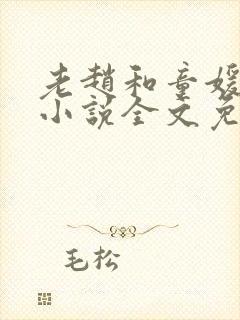 老趙和童媛
小說全文免
毛松